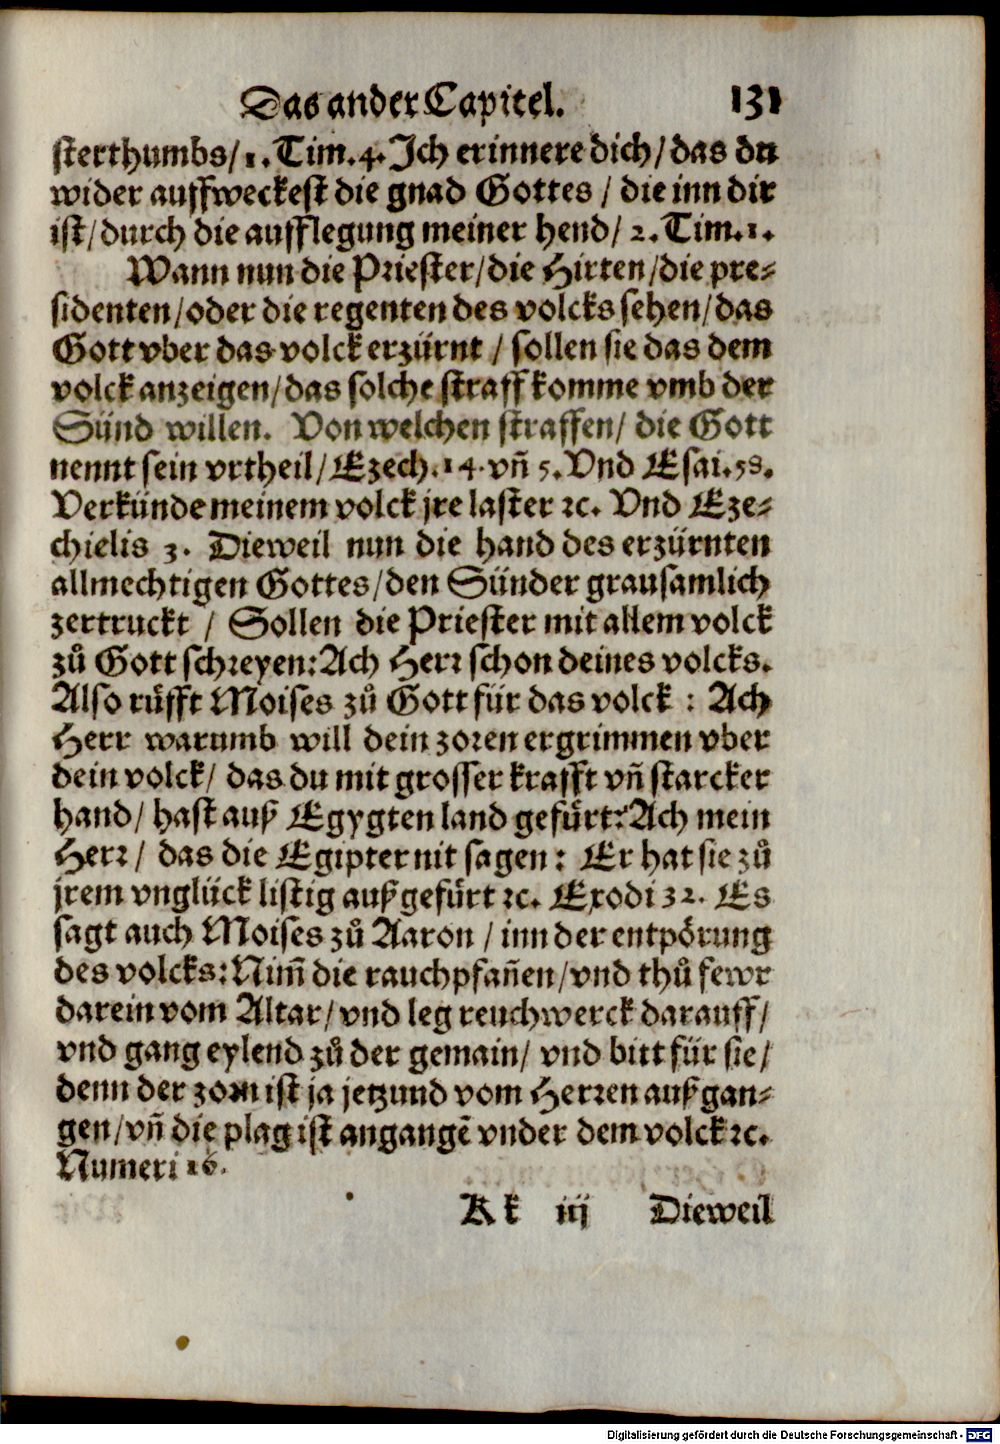 Das ander Capitel. 131
sterthumbs/ 1. Tim. 4. Ich erinnere dich/ das du
wider auffweckest die gnad Gottes / die inn dir
ist/ durch die aufflegung meiner hend/ 2. Tim. 1.
Wann nun die Priester/ die Hirten/ die pre-
sidenten/ oder die regenten des volcks sehen/ das
Gott vber das volck erzürnt / sollen sie das dem
volck anzeigen/ das solche straff komme vmb der
Sünd willen. Von welchen straffen/ die Gott
nennt sein vrtheil/ Ezech. 14. vñ 5. Vnd Esai. 58.
Verkünde meinem volck jre laster ꝛc. Vnd Eze-
chielis 3. Dieweil nun die hand des erzürnten
allmechtigen Gottes/ den Sünder grausamlich
zertruckt / Sollen die Priester mit allem volck
zů Gott schreyen: Ach Herr schon deines volcks.
Also růfft Moises zů Gott für das volck : Ach
Herr warumb will dein zoren ergrimmen vber
dein volck/ das du mit grosser krafft vñ starcker
hand/ hast auß Egygten land gefürt: Ach mein
Herr/ das die Egipter nit sagen : Er hat sie zů
jrem vnglück listig auß gefürt ꝛc. Exodi 32. Es
sagt auch Moises zů Aaron / inn der entpörung
des volcks: Nim̃ die rauchpfañen/ vnd thů fewr
darein vom Altar/ vnd leg reuchwerck darauff/
vnd gang eylend zů der gemain/ vnd bitt für sie/
denn der zorn ist ja jetzund vom Herren auß gan-
gen/ vñ die plag ist angangẽ vnder dem volck ꝛc.
Numeri 16.
Kk iij Dieweil
Digitalisierung gefördert durch die Deutsche Forschungsgemeinschaft - DFG